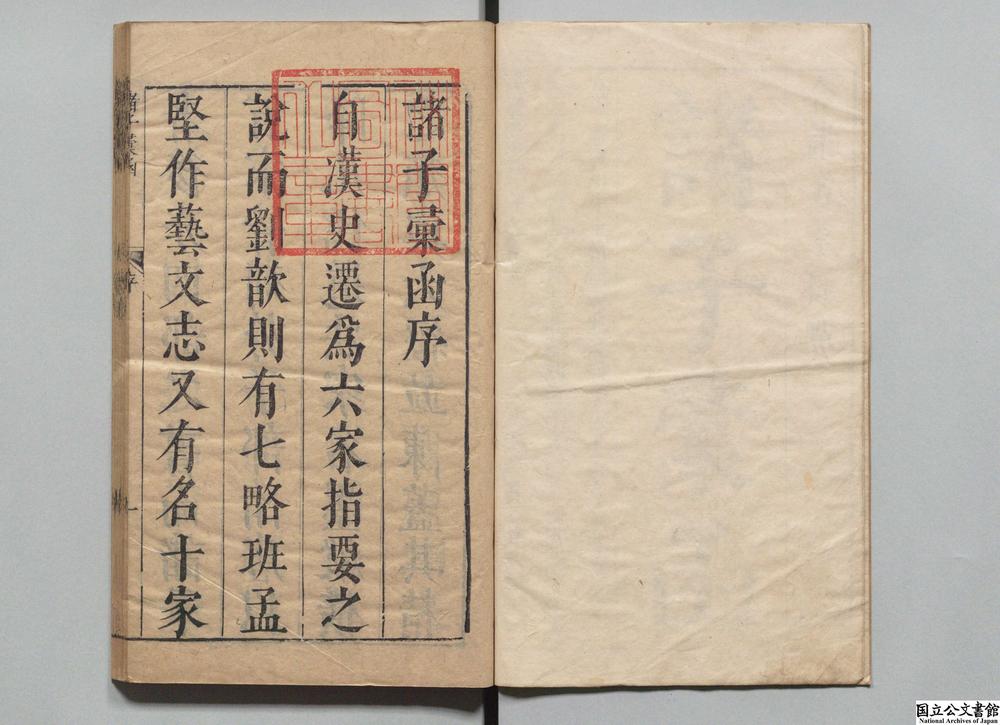 諸子彙函序
自漢史遷爲六家指要之
說而劉歆則有七略班孟
堅作藝文志又有名十家
諸子彙函
序
一
国立公文書館
National Archives of Japan